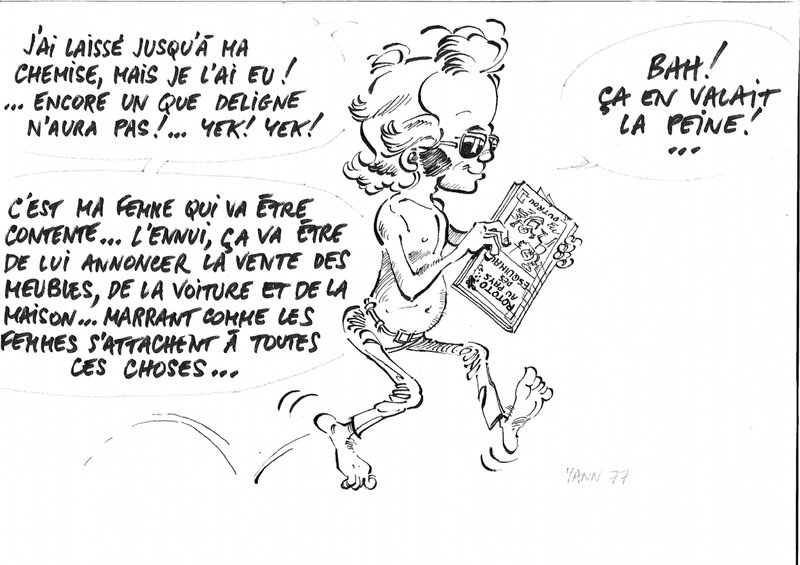 J'AI LAISSÉ JUSQU'À MA
CHEMISE, MAIS JE L'AI EU !
... ENCORE UN QUE DELIGNE
N'AURA PAS !... YEK! YEK!
C'EST MA FEMME QUI VA ÊTRE
CONTENTE... L'ENNUI, ÇA VA ÊTRE
DE LUI ANNONCER LA VENTE DES
MEUBLES, DE LA VOITURE ET DE LA
MAISON... MARRANT COMME LES
FEMMES S'ATTACHENT À TOUTES
CES CHOSES...
BAH!
ÇA EN VALAIT
LA PEINE!
...
DUTROU
TOTOTO
AU PAYS
DES
ESQUIMAUX
YANN 77